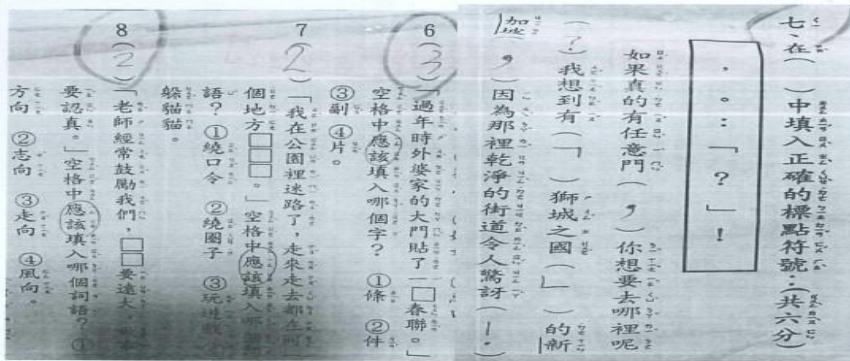 七、在（　）中填入正確的標點符號：（共六分）
，。：「？」！
如果真的有任意門（，）你想要去哪裡呢
（？）我想到有（「）獅城之國（」）的新
加坡
（，）因為那裡乾淨的街道令人驚訝（！）
6（3）「過年時外婆家的大門貼了一□春聯。」
空格中應該填入哪個字？　①條　②件
③副　④片。
7（2）「我在公園裡迷路了，走來走去都在同
個地方□□□。」空格中應該填入哪
語？　①繞口令　②繞圈子　③玩遊戲
躲貓貓。
8（2）「老師經常鼓勵我們，□□要遠大，
要認真。」空格中應該填入哪個詞語？　①
方向　②志向　③走向　④風向。